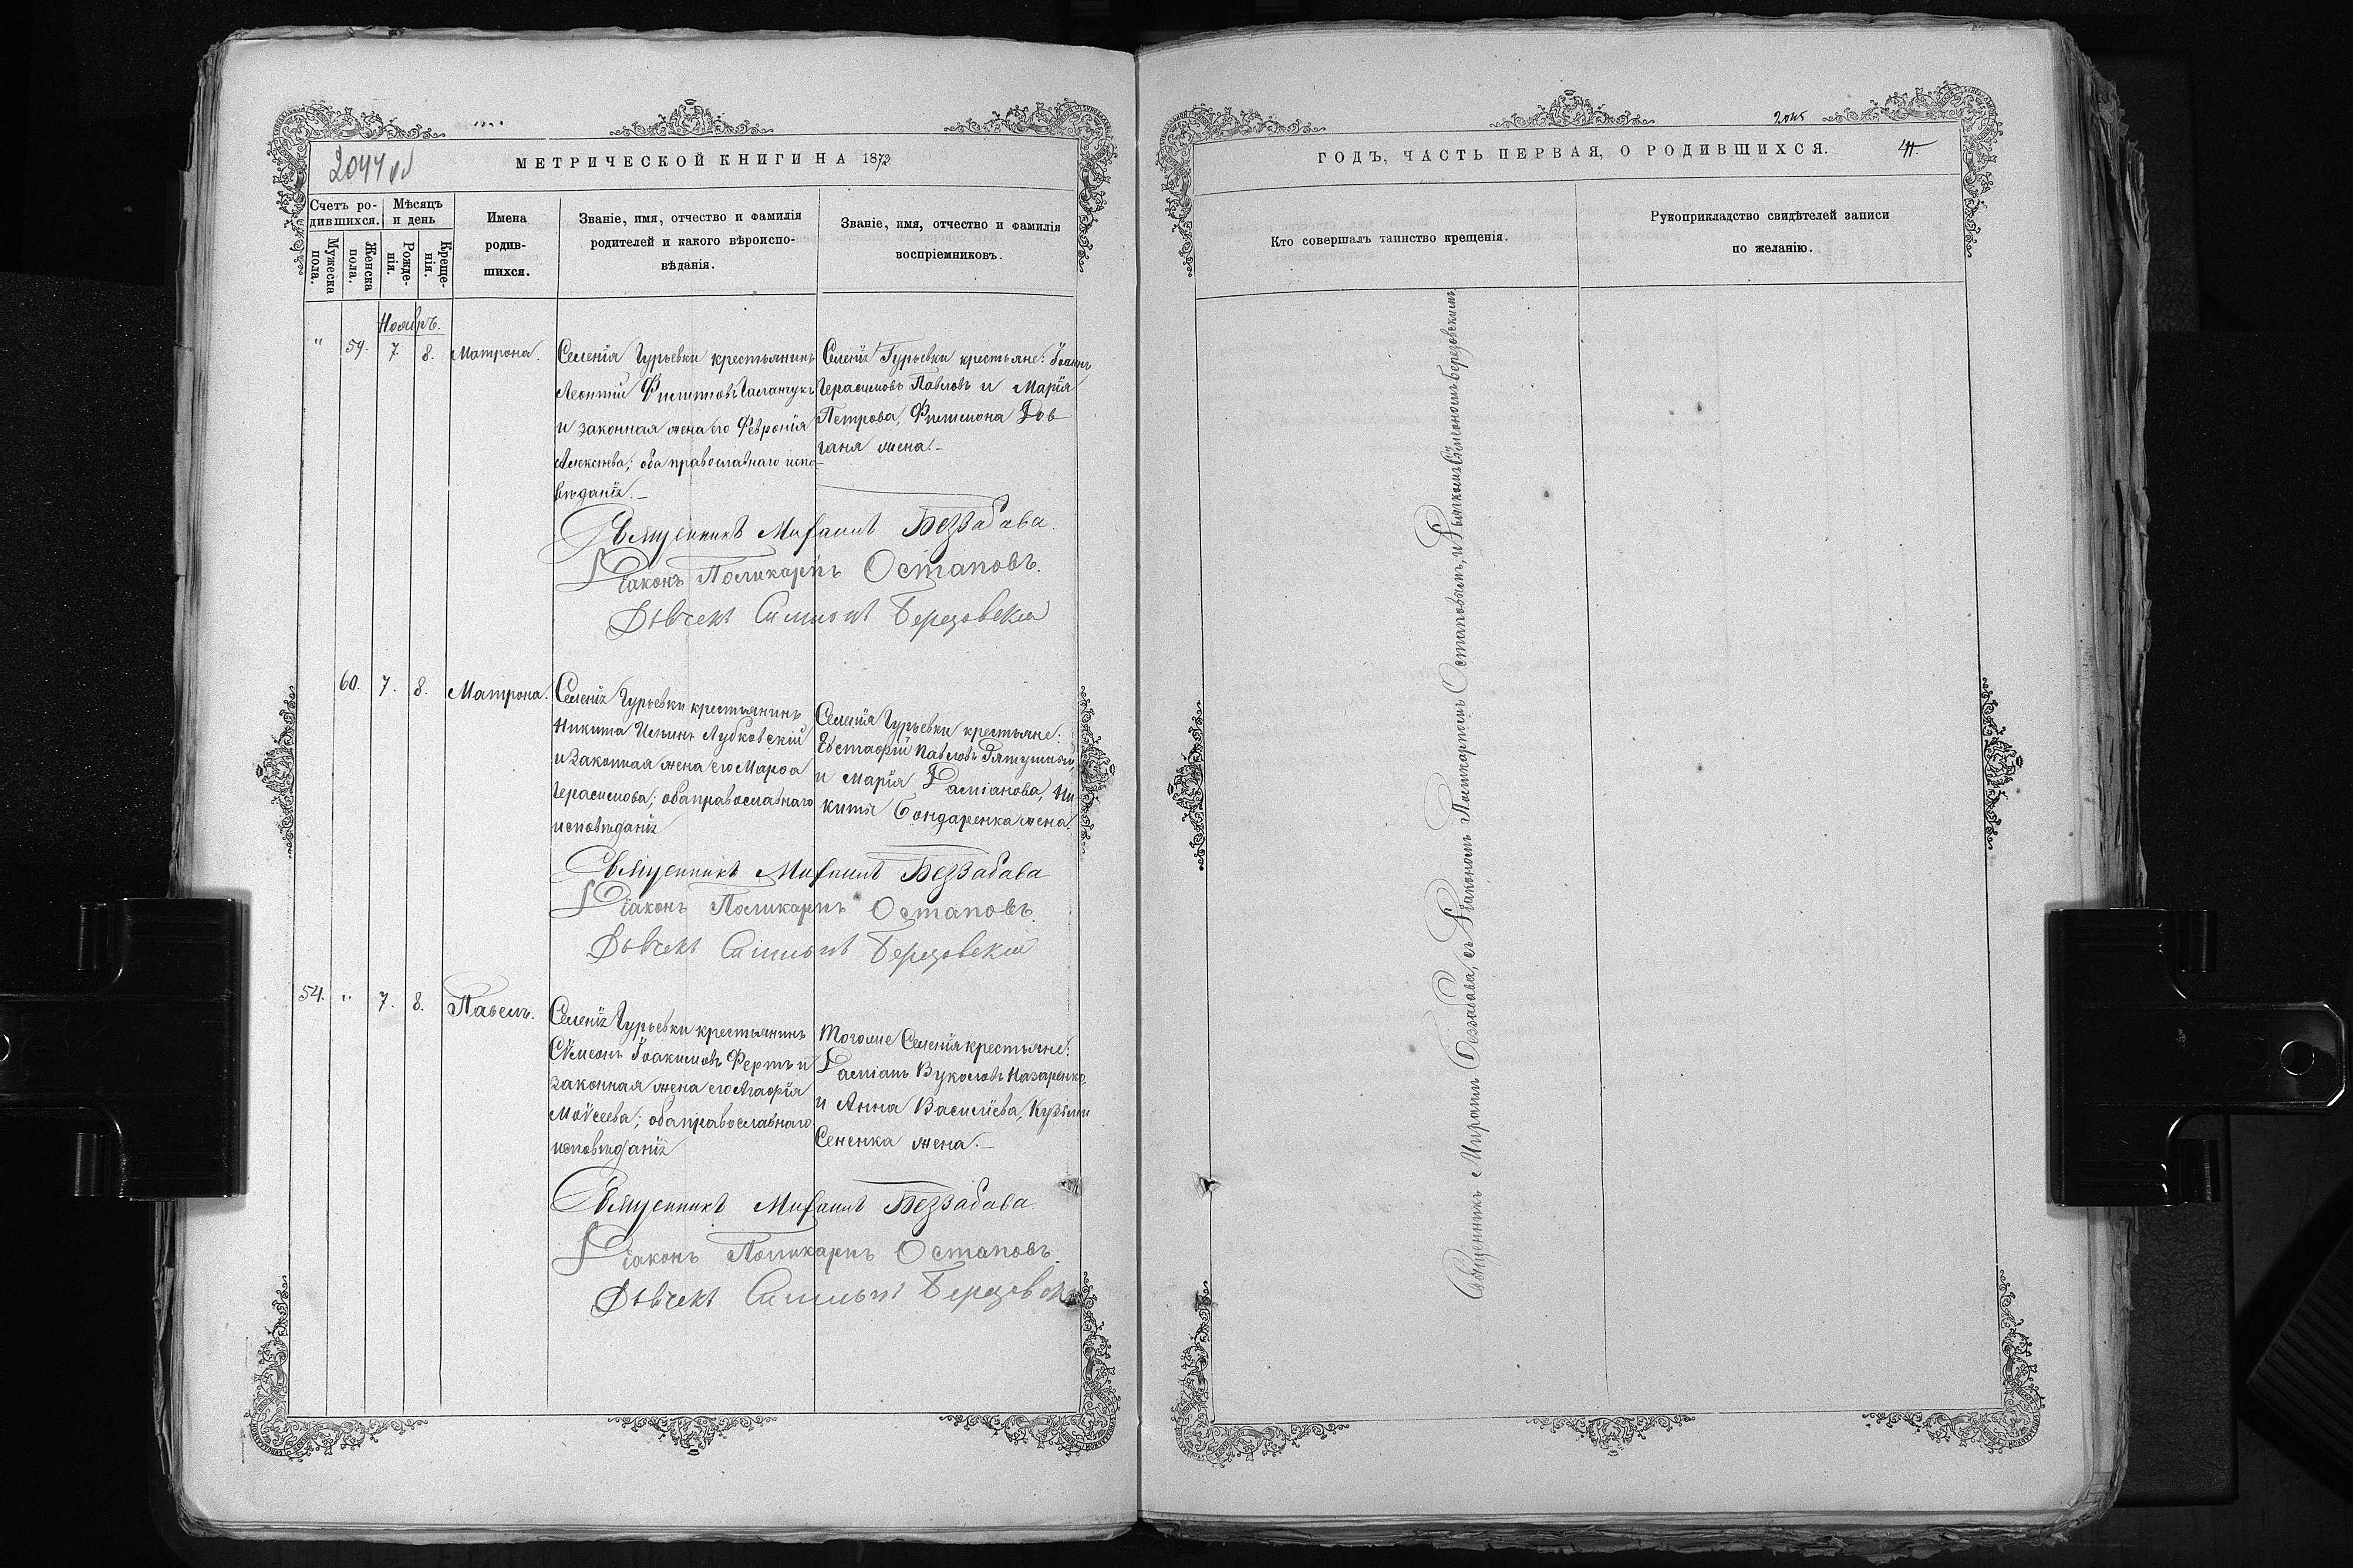 2044 об
МЕТРИЧЕСКОЙ КНИГИ НА 1872
Счетъ ро-
дившихся.
Мужеска
пола.
Женска
пола.
Мѣсяцъ
и день
Рожде-
нія.
Креще-
нія.
Имена
родив-
шихся.
Званіе, имя, отчество и фамилія
родителей и какого вѣроиспо-
вѣданія.
Званіе, имя, отчество и фамилія
воспріемниковъ.
Ноябрь.
" 59. 7. 8. Матрона.
Селенія Гурьевки крестьянинъ
Леонтій Филиповъ
и законная жена его Февронія
Алексѣева; оба православнаго испо-
вѣданія.
Селенія Гурьевки крестьяне: Іоаннъ
Герасимовъ Павловъ и Марія
Петрова, Филимона Дов
ганя жена.
Священникъ Михаилъ Беззабава.
Діаконъ Поликарпъ Остаповъ.
Дьячекъ Симеонъ Березовскій
60. 7. 8. Матрона.
Селенія Гурьевки крестьянинъ
Никита Ильинъ Лубковскій
и законная жена его Марѳа
Герасимова; оба православнаго
исповѣданія
Селенія Гурьевки крестьяне:
Евстафій Павловъ
и Марія Даміанова, Ни-
киты Бондаренка жена.
Священникъ Михаилъ Беззабава
Діаконъ Поликарпъ Остаповъ.
Дьячекъ Симеонъ Березовскій
54. " 7. 8. Павелъ.
Селенія Гурьевки крестьянинъ
Сѵмеонъ Іоакимовъ Фертъ и
законная жена его Агафія
Моѵсеева; оба православнаго
исповѣданія
Тогоже Селенія крестьяне:
Даміанъ Вуколовъ Назаренко
и Анна Василіева, Кузьмы
Сененка жена.
Священникъ Михаилъ Беззабава.
Діаконъ Поликарпъ Остаповъ.
Дьячекъ Симеонъ Березовск
2045
ГОДЪ, ЧАСТЬ ПЕРВАЯ, О РОДИВШИХСЯ.
Кто совершалъ таинство крещенія.
Рукоприкладство свидѣтелей записи
по желанію.
Священникъ Михаилъ Беззабава, съ Діакономъ Поликарпомъ Остаповымъ, и Дьячкомъ Сѵмеономъ Березовскимъ